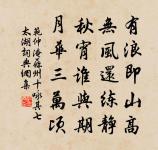 有浪即山高
無風還練靜
秋宵誰與期
月華三萬頃
范仲淹蘇州十咏其七
太湖詞典網集